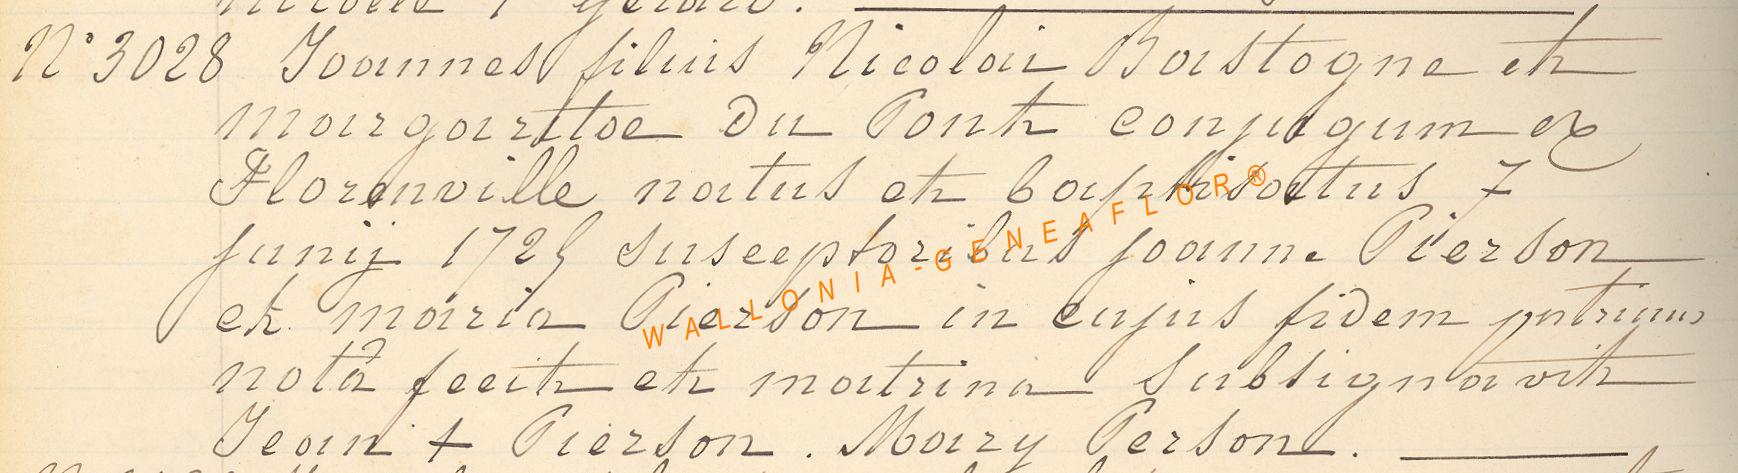 N° 3028 Joannes filius Nicolai Bastogne et
margaritae Du Pont conjugum ex
Florenville natus et baptisatus 7
junij 1729 susceptoribus joanne Pierson
et maria Pierson in cujus fidem patrinus
notã fecit et matrina Subsignavit
Jean + Pierson. Mary Person.
WALLONIA-GENEAFLOR®